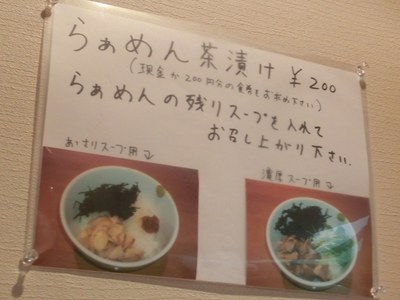 らぁめん茶漬け ¥200
(現金か200円分の食券をお求め下さい)
らぁめんの残りスープを入れて
お召し上がり下さい.
あっさりスープ用
濃厚スープ用